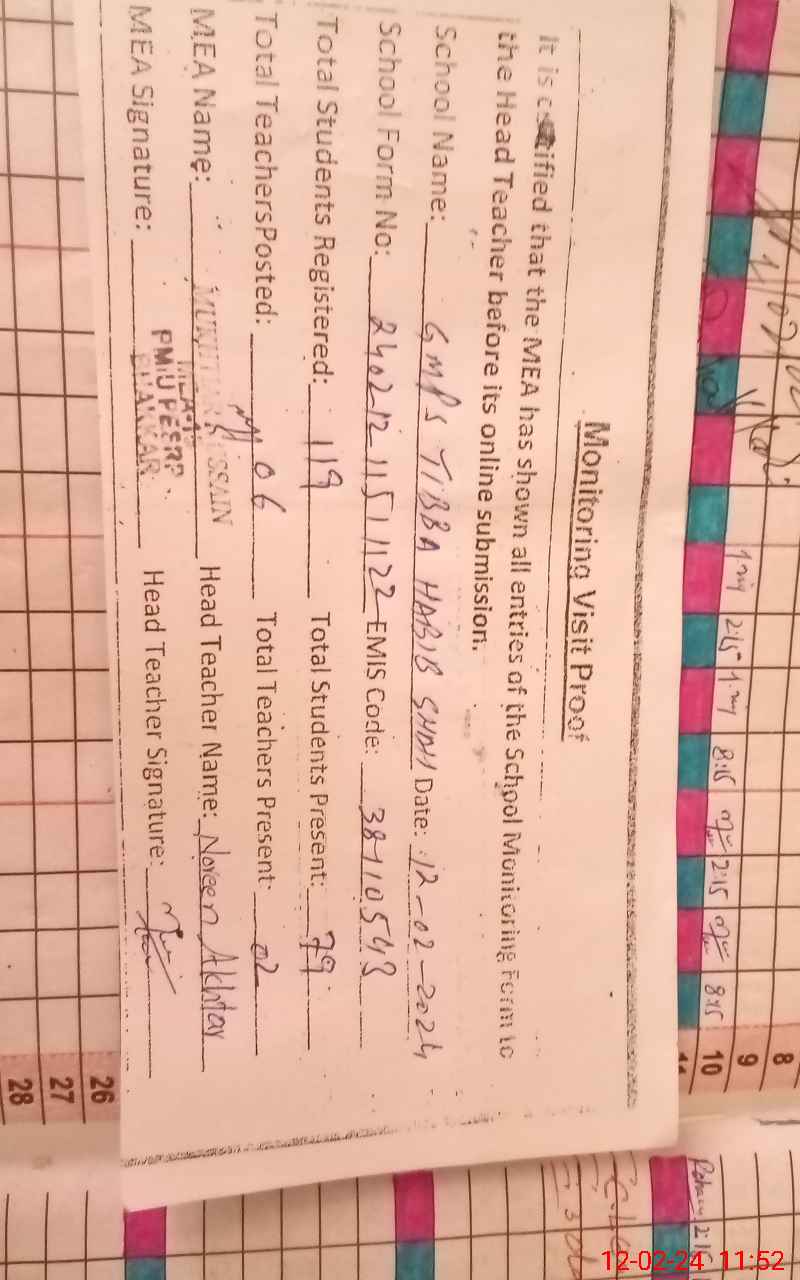 Monitoring Visit Proof
It is certified that the MEA has shown all entries of the School Monitoring Form to
the Head Teacher before its online submission.
School Name: GMPS TIBBA HABIB SHAH Date: 12-02-2024
School Form No: 2402-12 11511122 EMIS Code: 38110543
Total Students Registered: 119 Total Students Present: 79
Total TeachersPosted: 06 Total Teachers Present: 02
MEA Name: HUSSAIN Head Teacher Name: Noreen Akhtar
MEA Signature: PMIU PESRP BHAKKAR Head Teacher Signature:
8
9
10
11
2:15 8:15 2:15 8:15
26
27
28
12-02-24 11:52